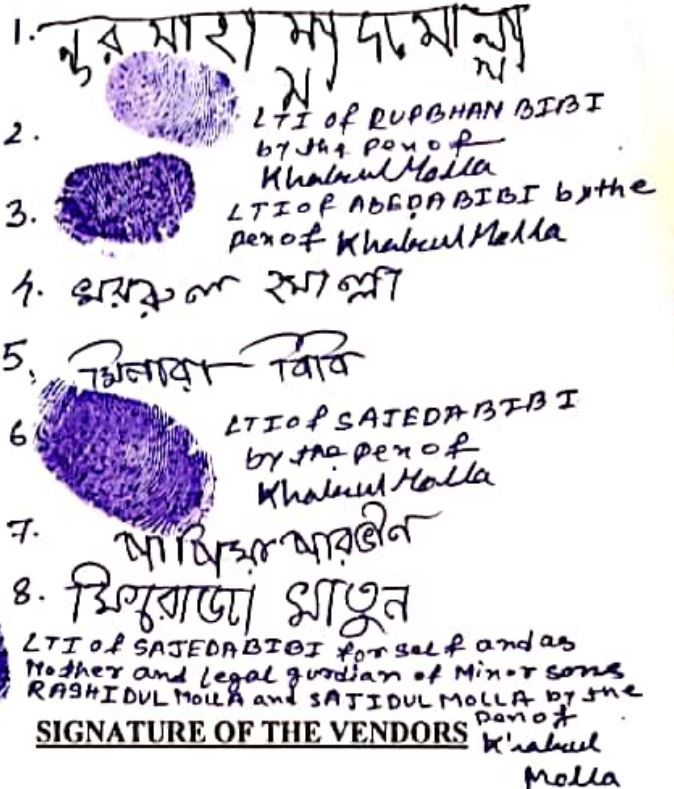 1. নুর মাহাম্মাদ মোল্লা
2. LTI of RUPBHAN BIBI
by the pen of
Khabirul Molla
3. LTI of ABEDA BIBI by the
pen of Khabirul Molla
4. খয়রুল মোল্লা
5. মিনারা বিবি
6 LTI of SAJEDA BIBI
by the pen of
Khabirul Molla
7. পারভীন
8. খাতুন
LTI of SAJEDA BIBI for self and as
Mother and legal gurdian of Minor sons
RASHIDUL MOLLA and SAJIDUL MOLLA by the
pen of
SIGNATURE OF THE VENDORS
Molla